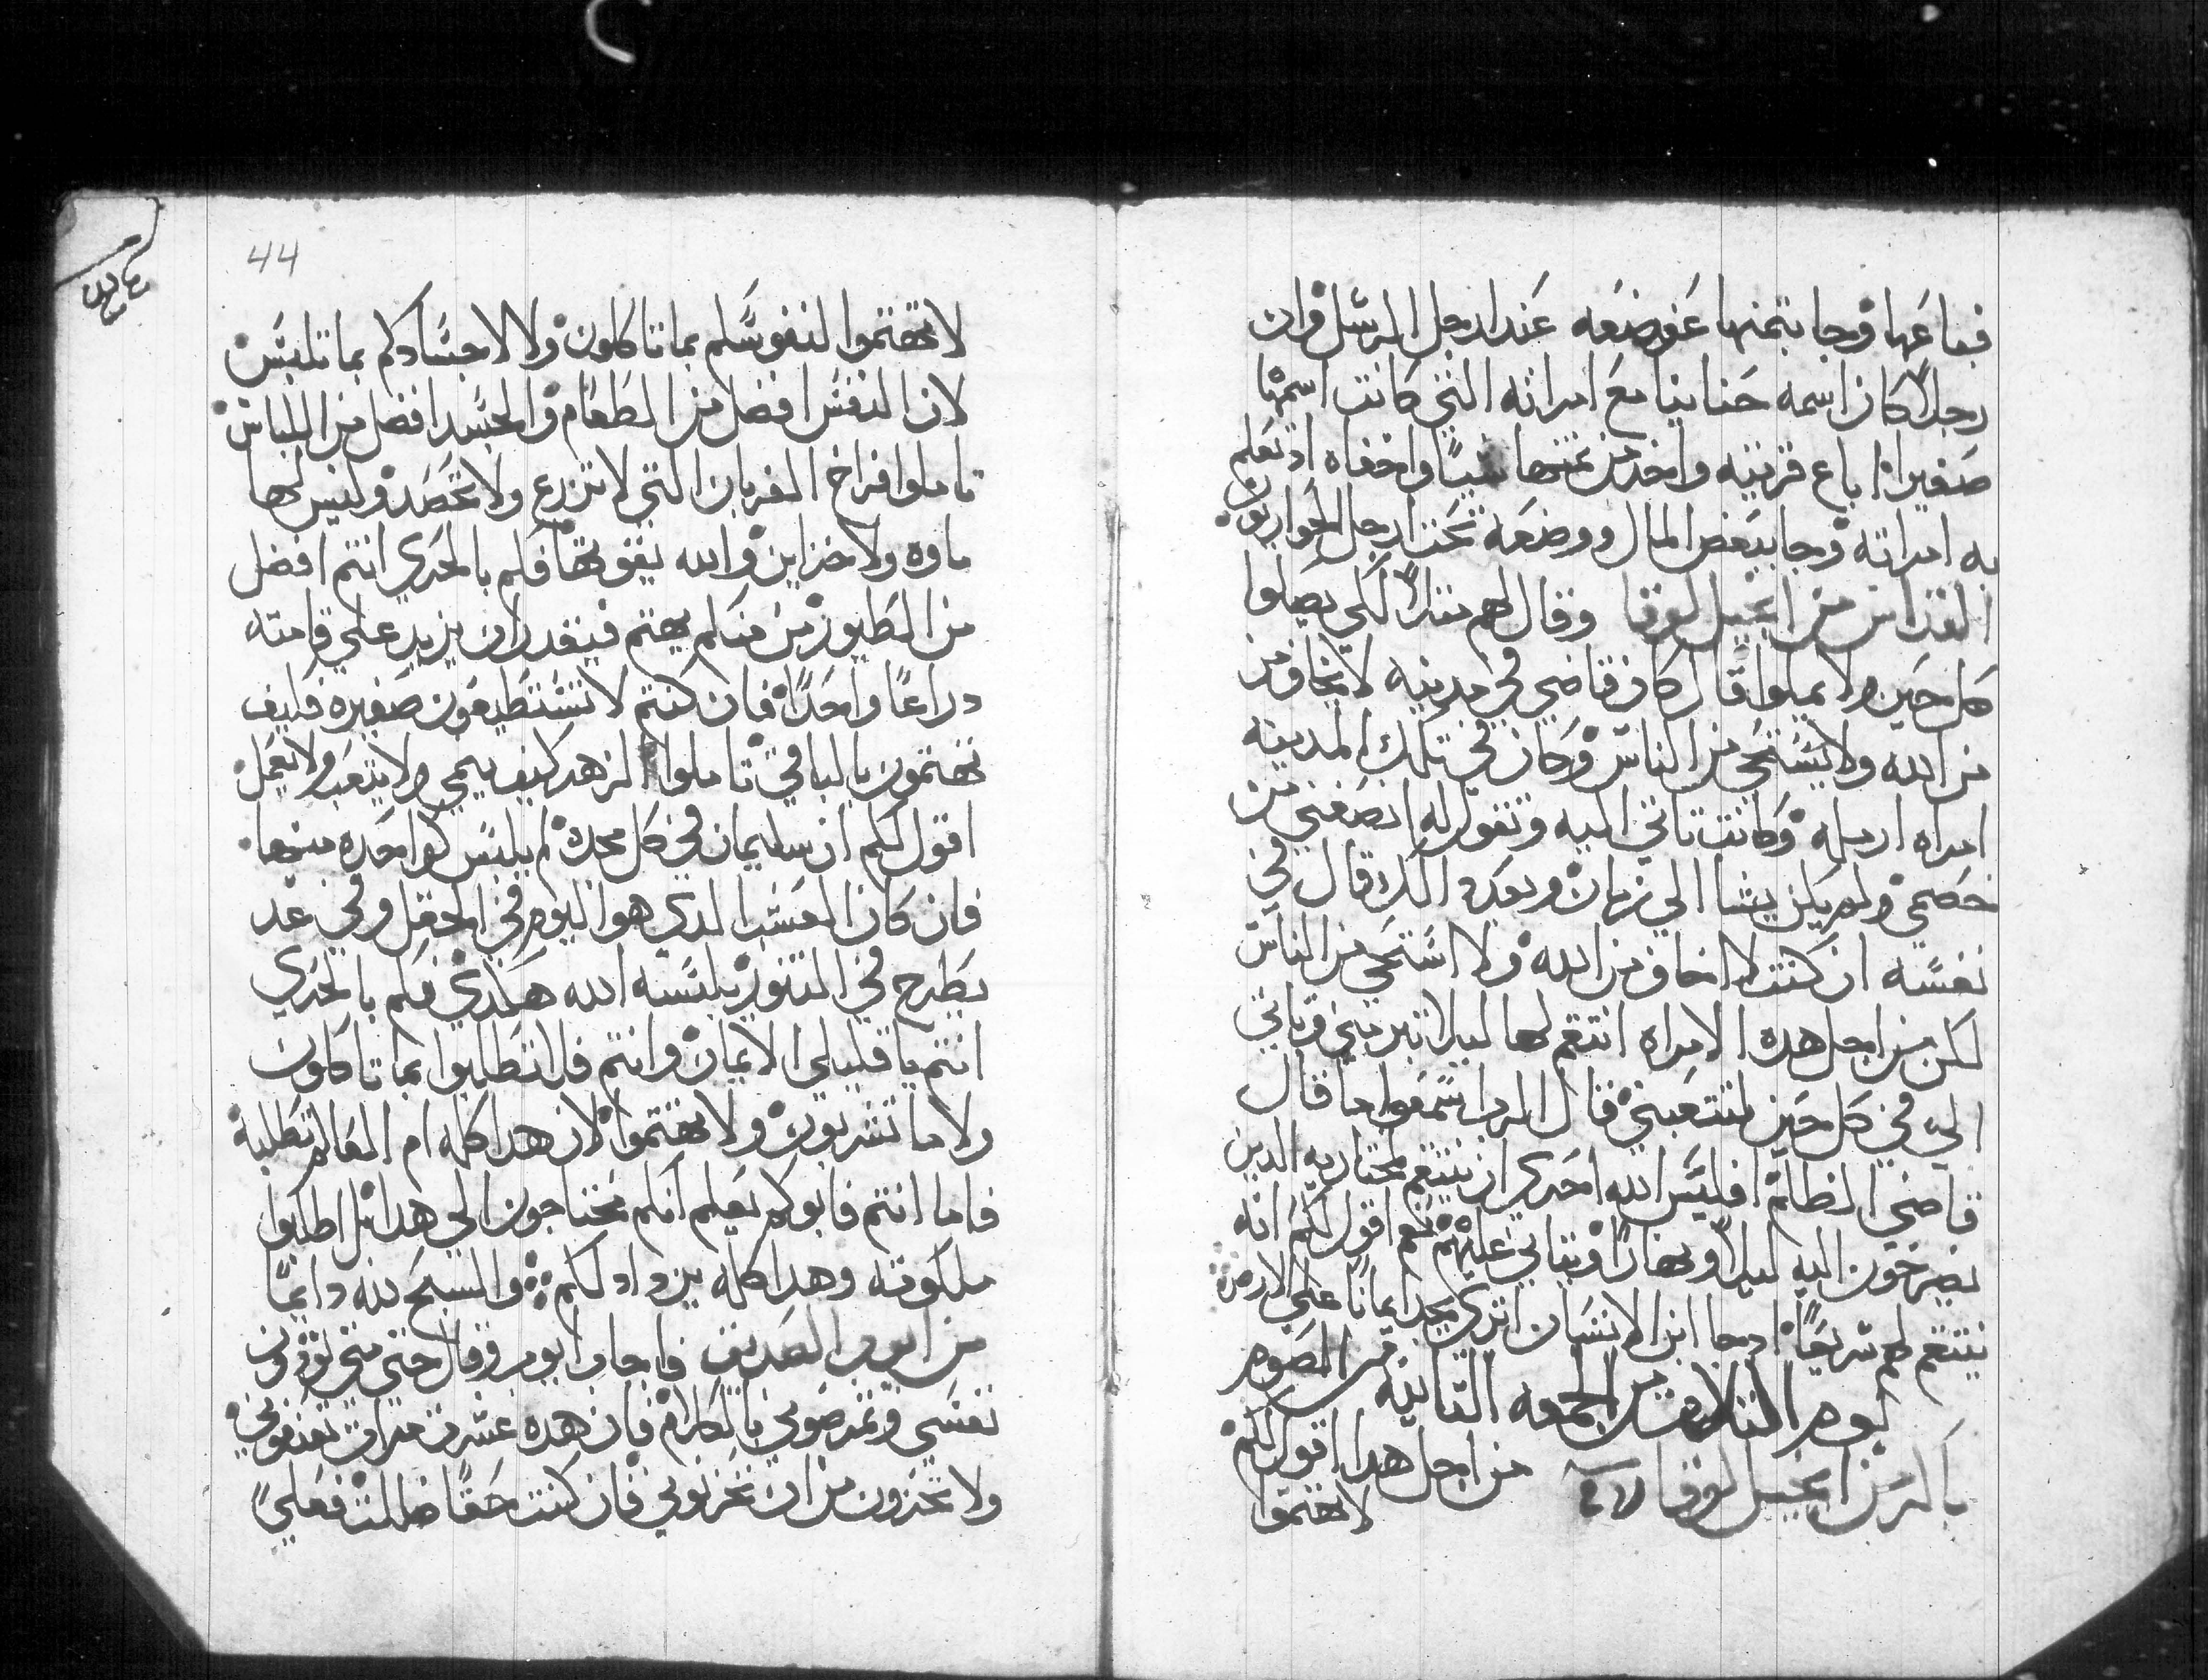 فباعها وجا بتمنها عوضعه عند ارجل الرسل وان
رجلاً كان اسمه حنانيا مع امراته التي كانت اسمها
صفيرا باع قريته واخد من تمنها شياً واخفاه اد تعلم
به امراته وجا ببعض المال ووضعه تحت ارجل الحواريون
القداس من انجيل لوقا وقال لهم متلاً لكي يصلوا
كل حين ولا يملوا قال كان قاضي في مدينه لا يخاف من
من الله ولا يستحي من الناس وكان في تلك المدينه
امراه ارمله وكانت تاتي اليه وتقول له انصفني من
خصمي ولم يكن يشا الي زمان وبعد دلك قال في
نفسه ان كنت لا اخاف من الله ولا استحي من الناس
لكن من اجل هده الامراه انتقم لها ليلا تبرمني وتاتي
الي في كل حين لتتعبني فقال الرب اسمعوا ما قال
قاضي الظلم افليس الله احري ان ينتقم لمختاريه الدين
يصرخون اليه ليلاً ونهاراً ويتاني عليهم نعم اقول لكم انه
ينتقم لهم سريعاً ادا جا ابن الانسان اتري يجد ايماناً علي الارض
يوم التلات من الجمعه التانيه من الصوم
باكر من انجيل لوقا من اجل هدا اقول لكم
لا تهتموا
44
لا تهتموا لنفوسكم بما تاكلون ولا لاجسادكم بما تلبس
لان النفس افضل من الطعام والجسد افضل من اللباس
تاملوا افراخ الغربان التي لا تزرع ولا تحصد وليس لها
ماوه ولا مخزاين والله يقوتها فكم بالحري انتم افضل
من الطيور من منكم يهتم فيقدر ان يزيد علي قامته
دراعاً واحداً فان كنتم لا تستطيعون صغيره فكيف
تهتمون بالباقي تاملوا الزهر كيف ينمي ولا يتعب ولا يعمل
اقول لكم ان سليمان في كل مجده لم يلبس كواحده منها
فان كان العشب الدي هوا اليوم في الحقل وفي غد
يطرح في التنور يلبسه الله هكدي فكم بالحري
انتم يا قليلي الايمان وانتم فلا تطلبوا بما تاكلون
ولا ما تشربون ولا تهتموا لان هدا كله امم العالم تطلبه
فاما انتم فابوكم يعلم انكم محتاجون الي هدا بل اطلبوا
ملكوته وهدا كله يزداد لكم والسبح لله دايماً
من ايوب الصديق فاجاب ايوب وقال حتي متي تؤدون
نفسي وتمرضوني بالكلام فان هده عشرة مرات تعنفوني
ولا تخزون من ان تخزنوني فان كنت حقاً ضللت فعلي